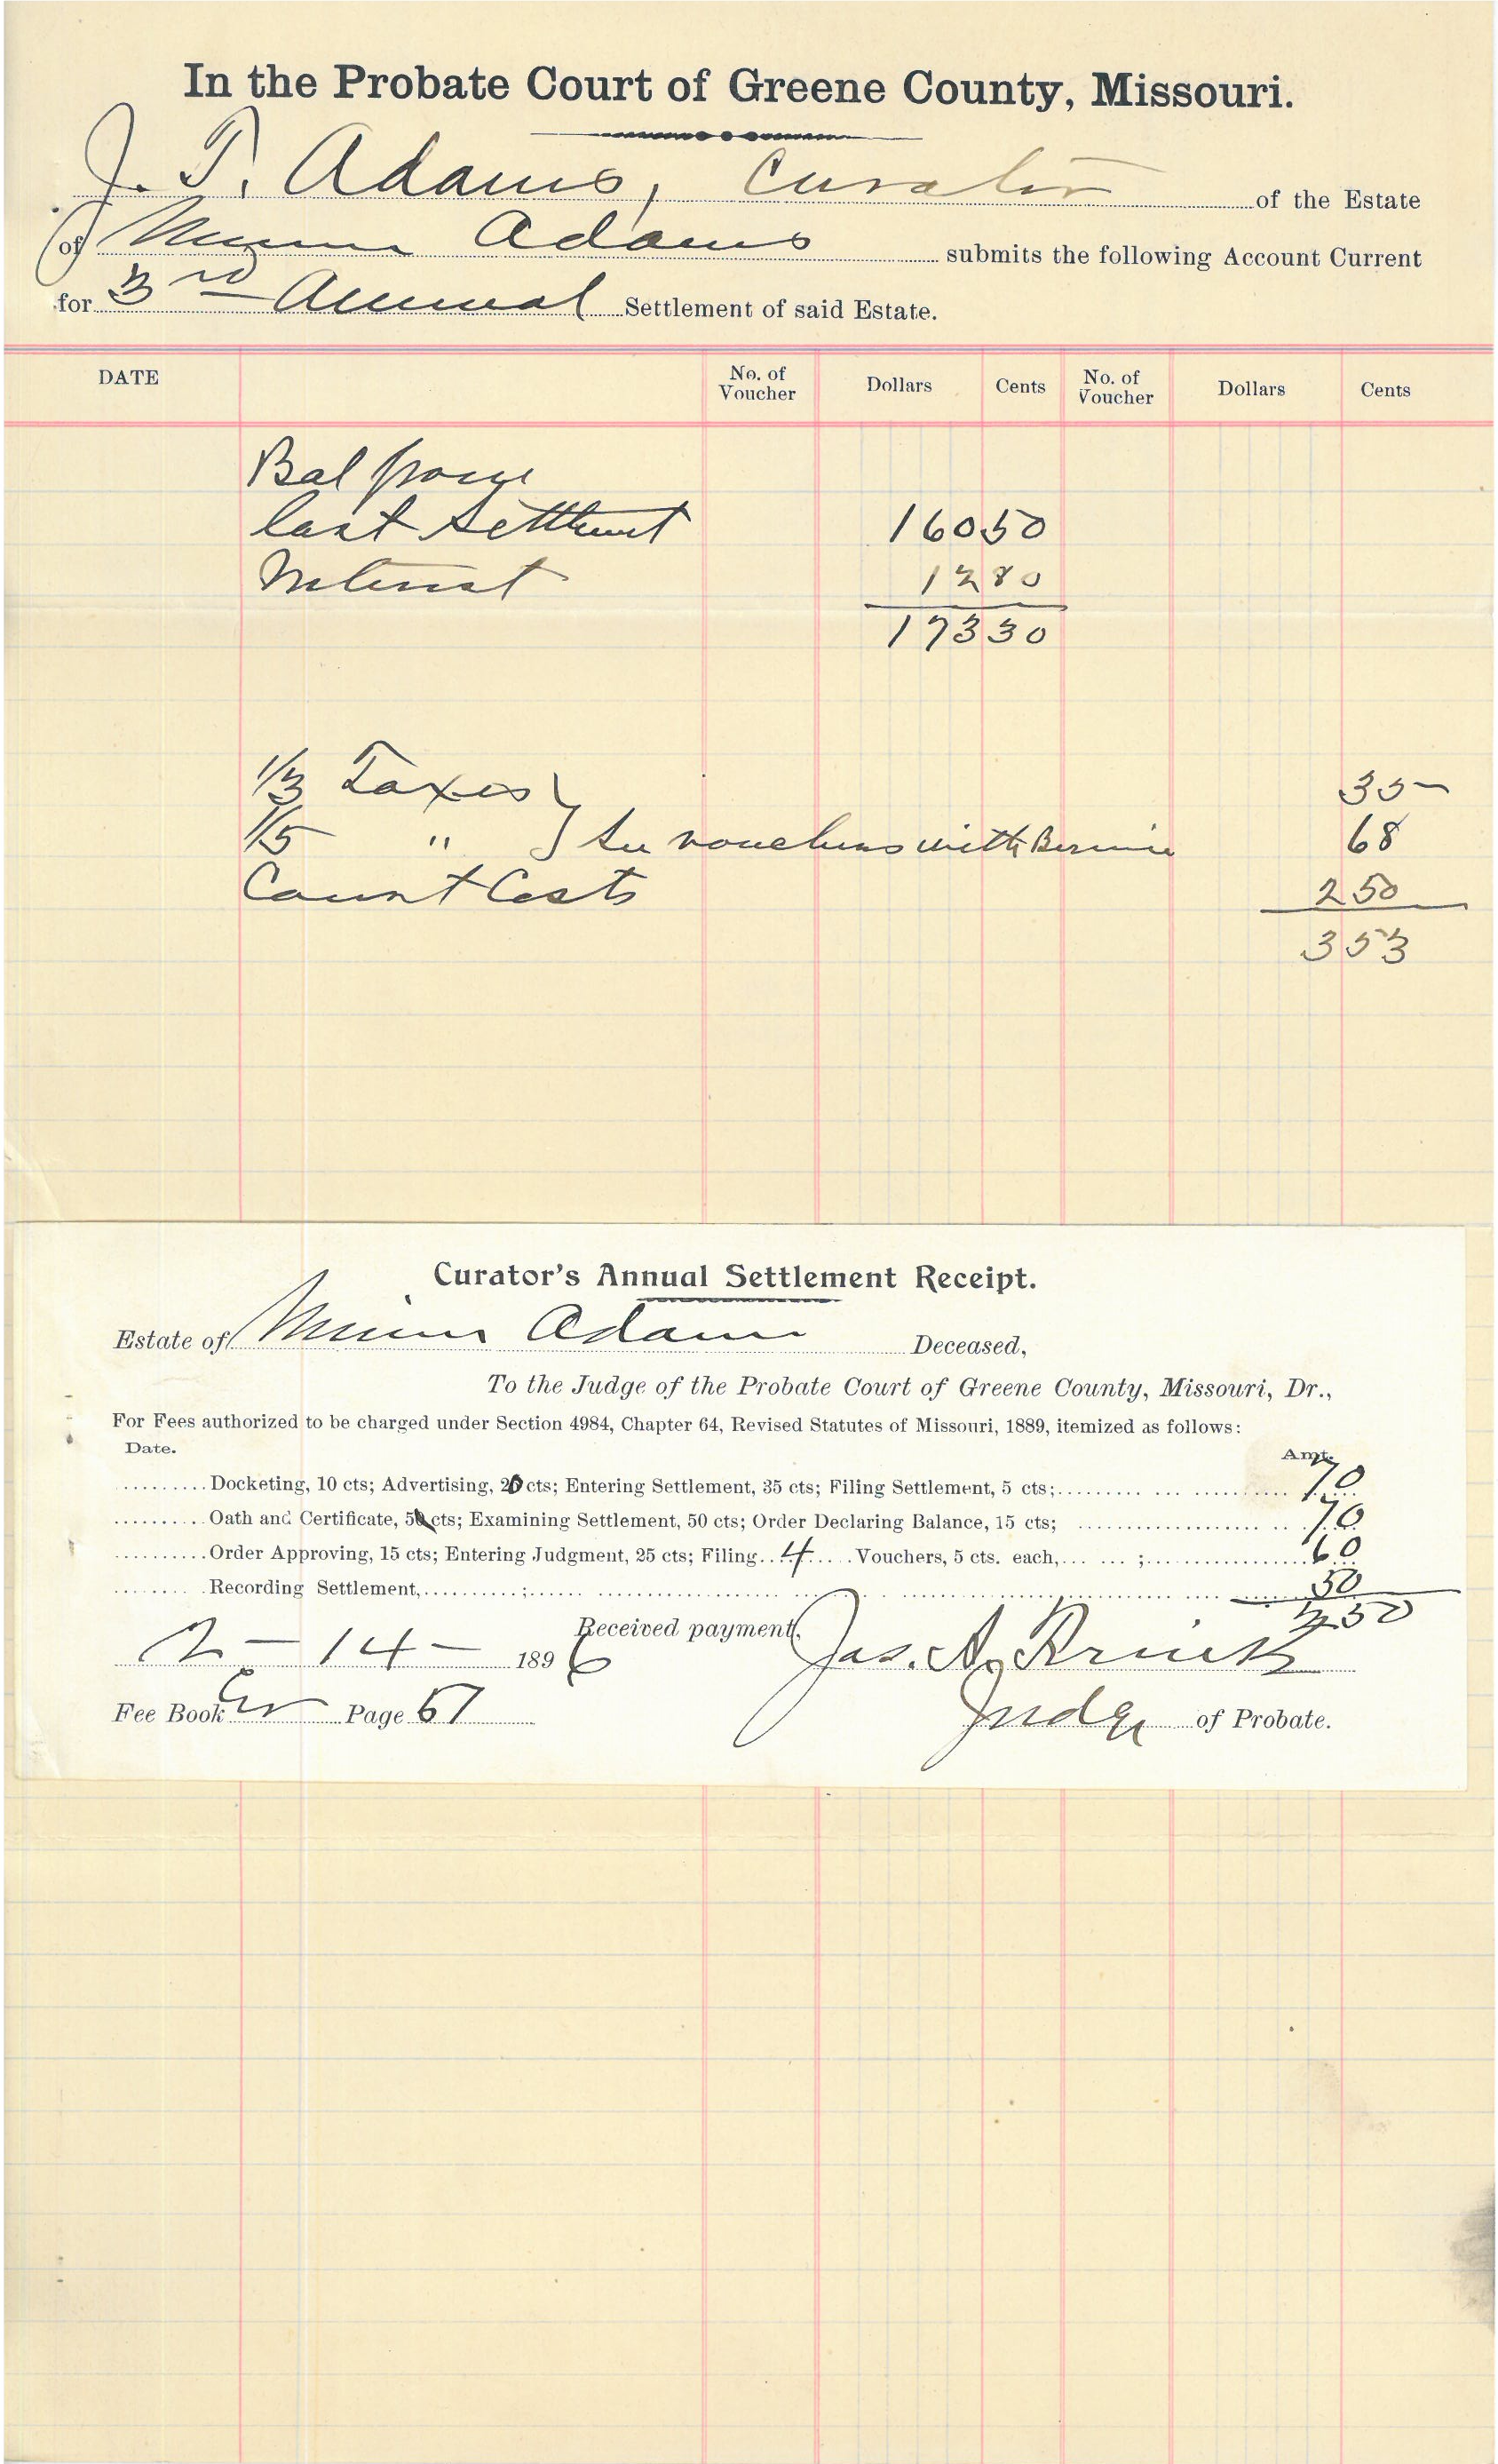 In the Probate Court of Greene County, Missouri.
J. T. Adams, Curator of the Estate
of Minnie Adams submits the following Account Current
for 3rd Annual Settlement of said Estate.
DATE No. of Voucher Dollars Cents No. of Voucher Dollars Cents
Bal from
last Settlemt 160 50
Interest 12 80
173 30
1/3 Taxes 35
1/5 " } See vouchers with Bernice 68
Court Costs 2 50
3 53
Curator's Annual Settlement Receipt.
Estate of Minnie Adams Deceased,
To the Judge of the Probate Court of Greene County, Missouri, Dr.,
For Fees authorized to be charged under Section 4984, Chapter 64, Revised Statutes of Missouri, 1889, itemized as follows:
Date. Amt.
Docketing, 10 cts; Advertising, 20 cts; Entering Settlement, 35 cts; Filing Settlement, 5 cts; 70
Oath and Certificate, 5 cts; Examining Settlement, 50 cts; Order Declaring Balance, 15 cts; 70
Order Approving, 15 cts; Entering Judgment, 25 cts; Filing 4 Vouchers, 5 cts. each, ; 60
Recording Settlement, ; 50
2 50
Received payment,
2-14-1896 Jas. A.
Fee Book Page 57 Judge of Probate.